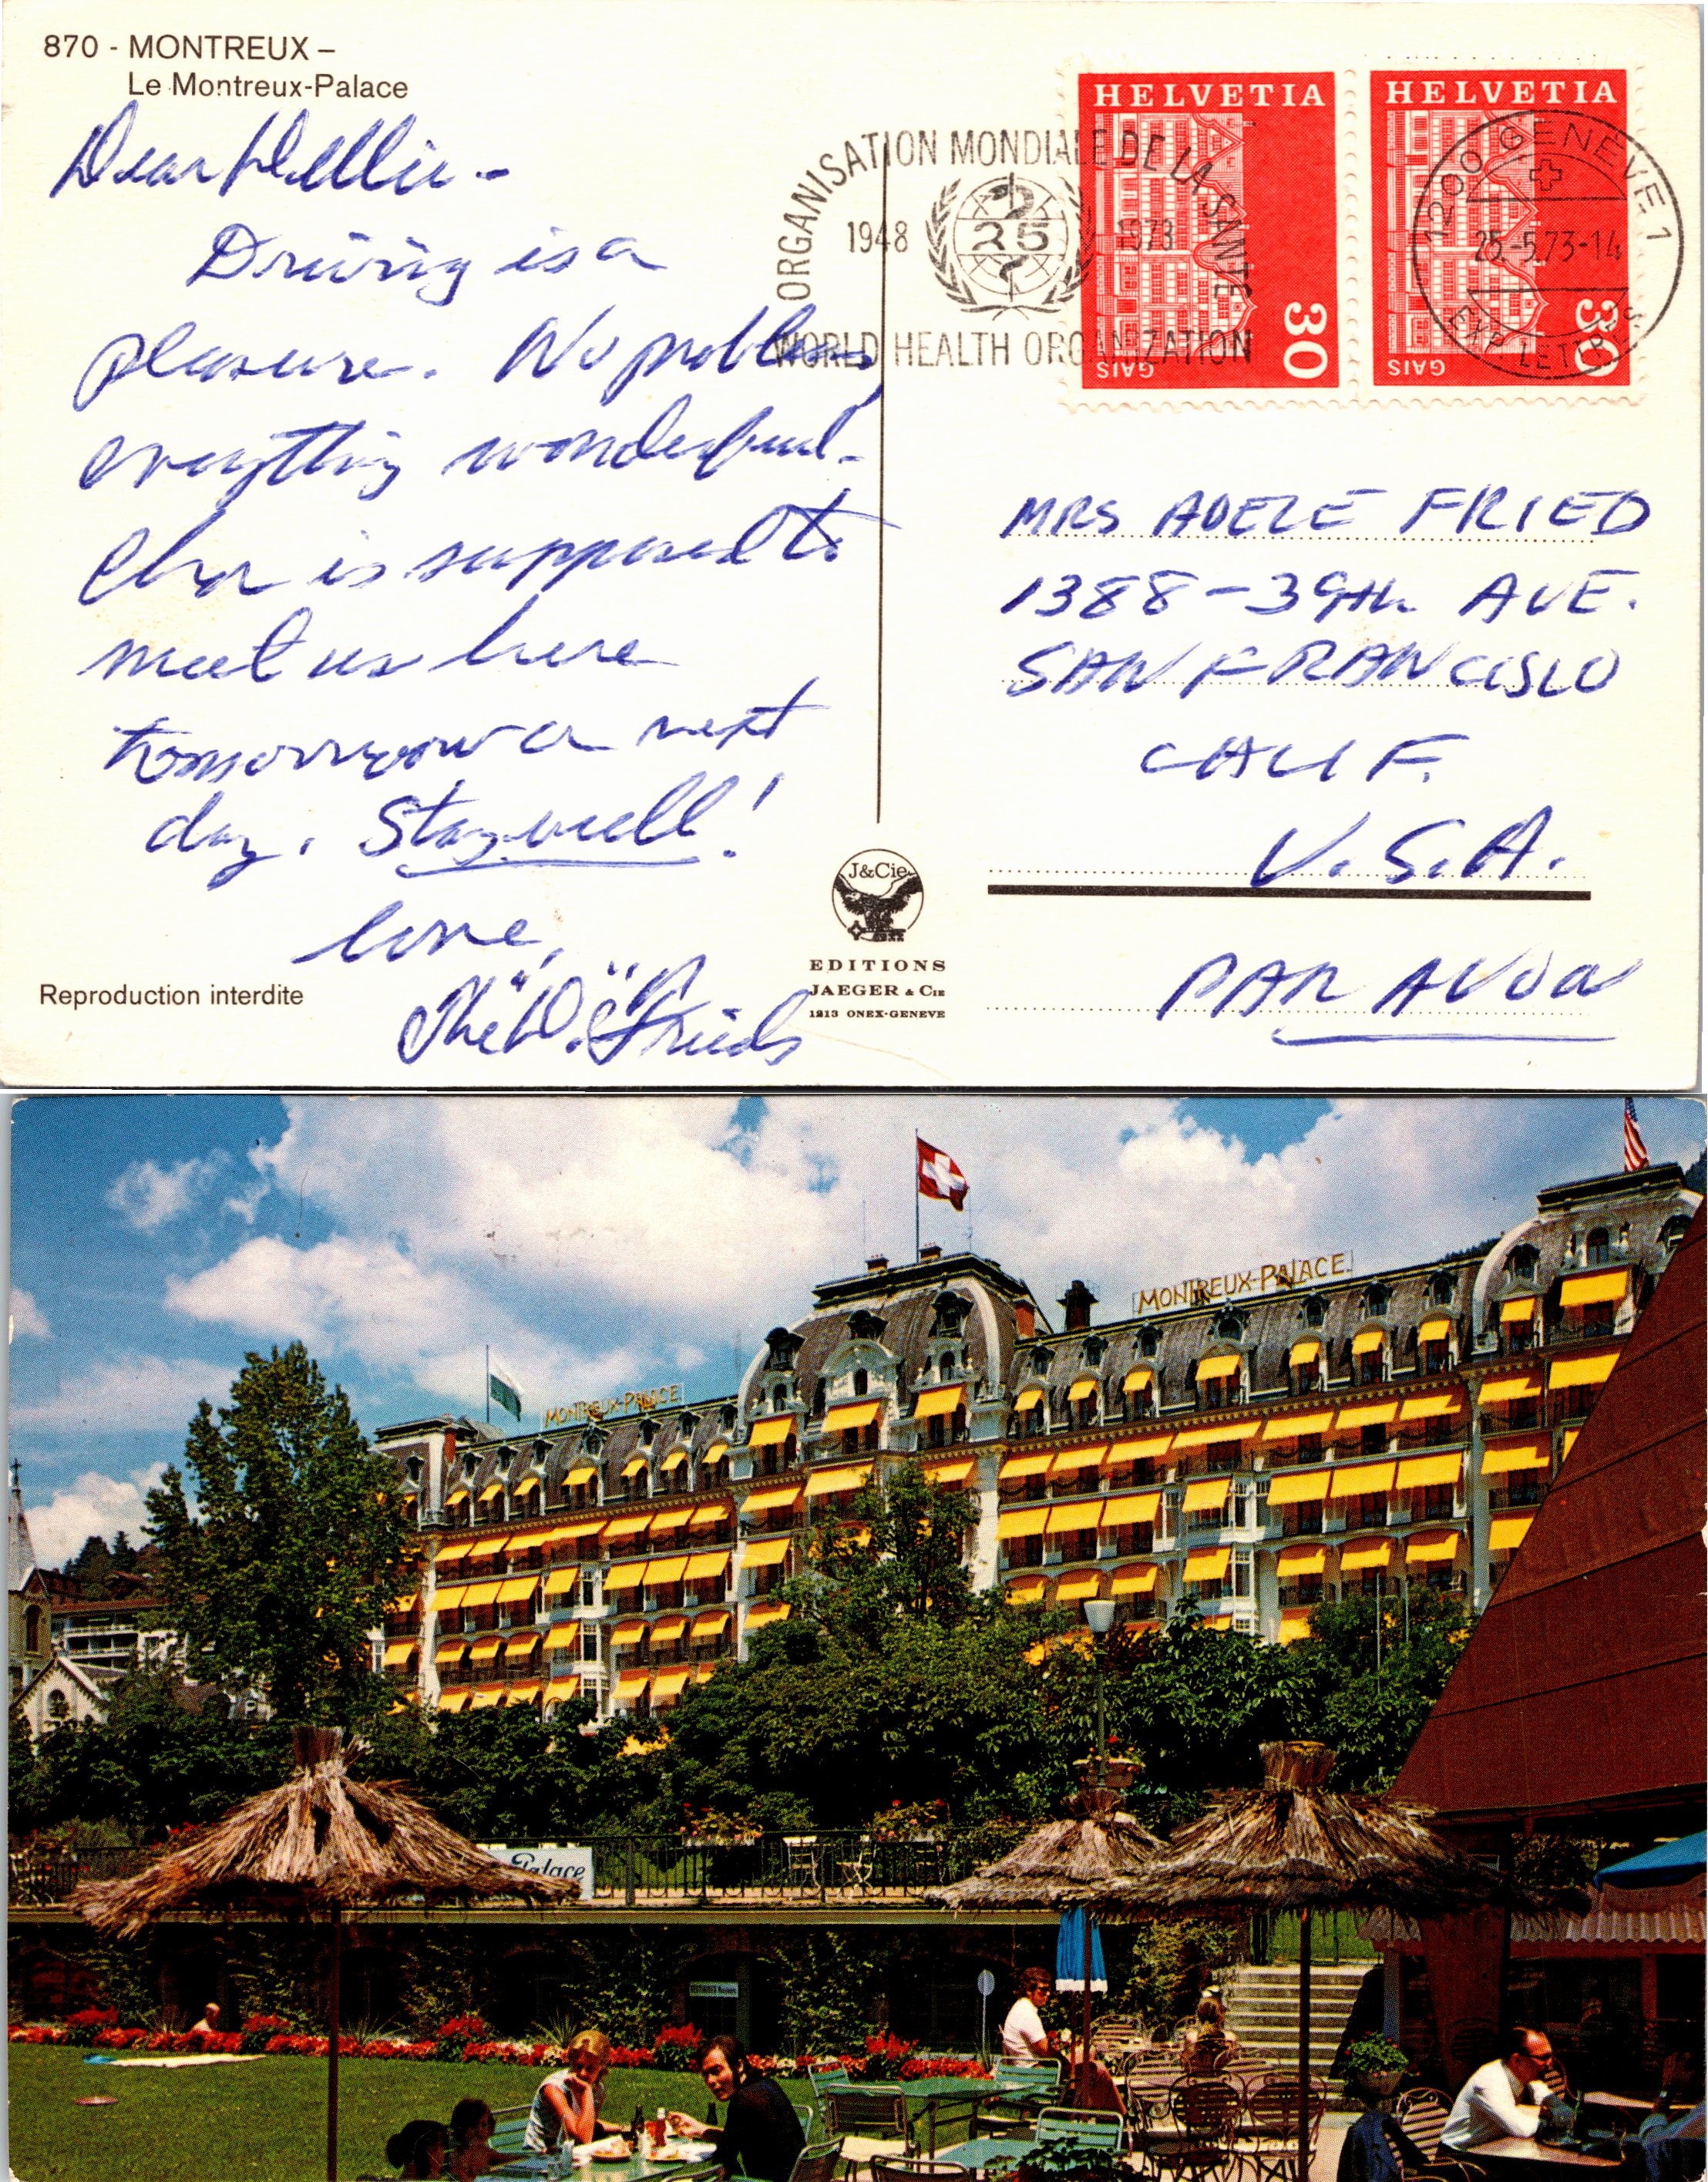 870 - MONTREUX –
Le Montreux-Palace
Dear
Driving is a
pleasure. No problems,
everything wonderful.
is supposed to
meet us here
tomorrow or next
day. Stay well!
Love,
The "D." Frieds
Reproduction interdite
ORGANISATION MONDIALE DE LA SANTE
1948 25 1973
WORLD HEALTH ORGANIZATION
HELVETIA
30
GAIS
HELVETIA
30
GAIS
1200 GENÈVE 1
25.-5.73-14
EXP LETTRES
MRS ADELE FRIED
1388-39TH. AVE.
SAN FRANCISCO
CALIF.
U.S.A.
PAR AVION
J&Cie
EDITIONS
JAEGER & CIE
1213 ONEX-GENEVE
MONTREUX-PALACE
MONTREUX-PALACE
Palace